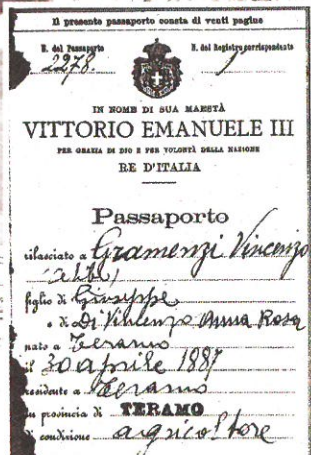 Il presente passaporto consta di venti pagine
N. del Passaporto N. del Registro corrispondente
2278. 1
IN NOME DI SUA MAESTÀ
VITTORIO EMANUELE III
PER GRAZIA DI DIO E PER VOLONTÀ DELLA NAZIONE
RE D'ITALIA
Passaporto
rilasciato a Gramenzi Vincenzo
figlio di Giuseppe
e di Di Vincenzo Anna Rosa
nato a Teramo
il 30 aprile 1887
residente a Teramo
in provincia di TERAMO
di condizione agricoltore